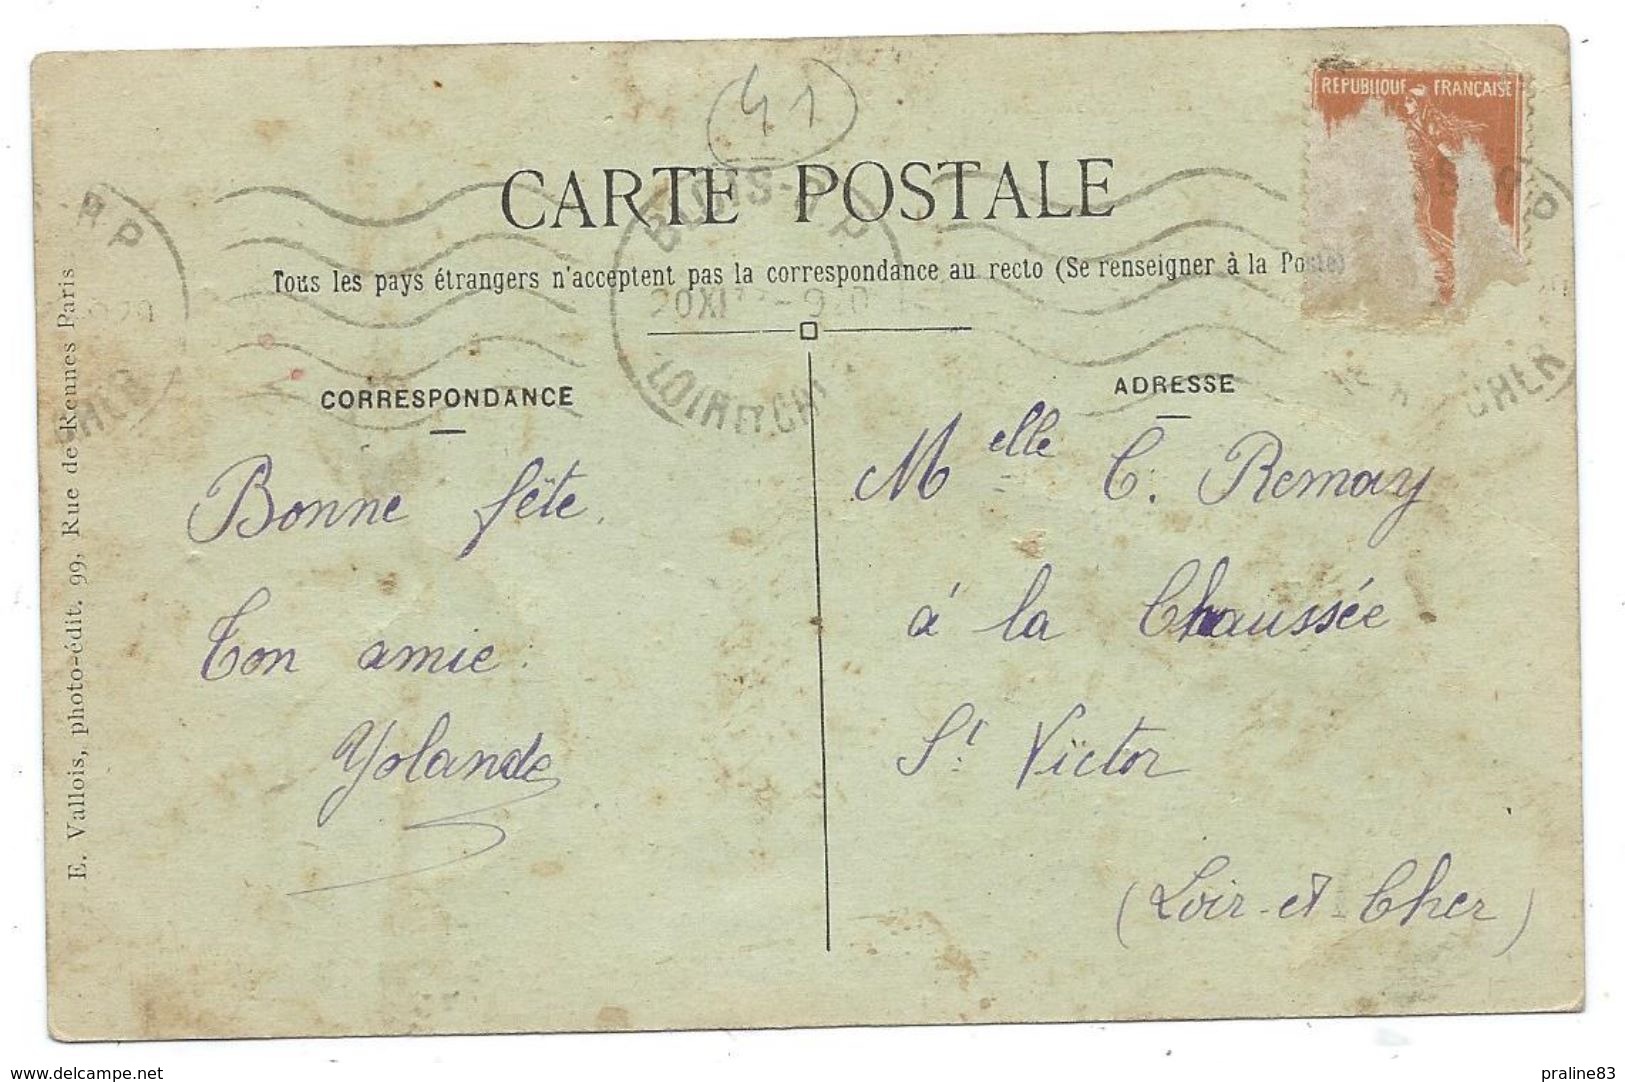 41
RÉPUBLIQUE FRANÇAISE
CARTE POSTALE
BLOIS-R.P
LOIR ET CH
R P
CHER
Tous les pays étrangers n'acceptent pas la correspondance au recto (Se renseigner à la Poste)
CORRESPONDANCE
ADRESSE
Bonne fête.
Ton amie
Yolande
Melle C. Remay
à la Chaussée
St Victor
(Loir-et-Cher)
E. Vallois, photo-édit. 99, Rue de Rennes Paris
delcampe.net
praline83